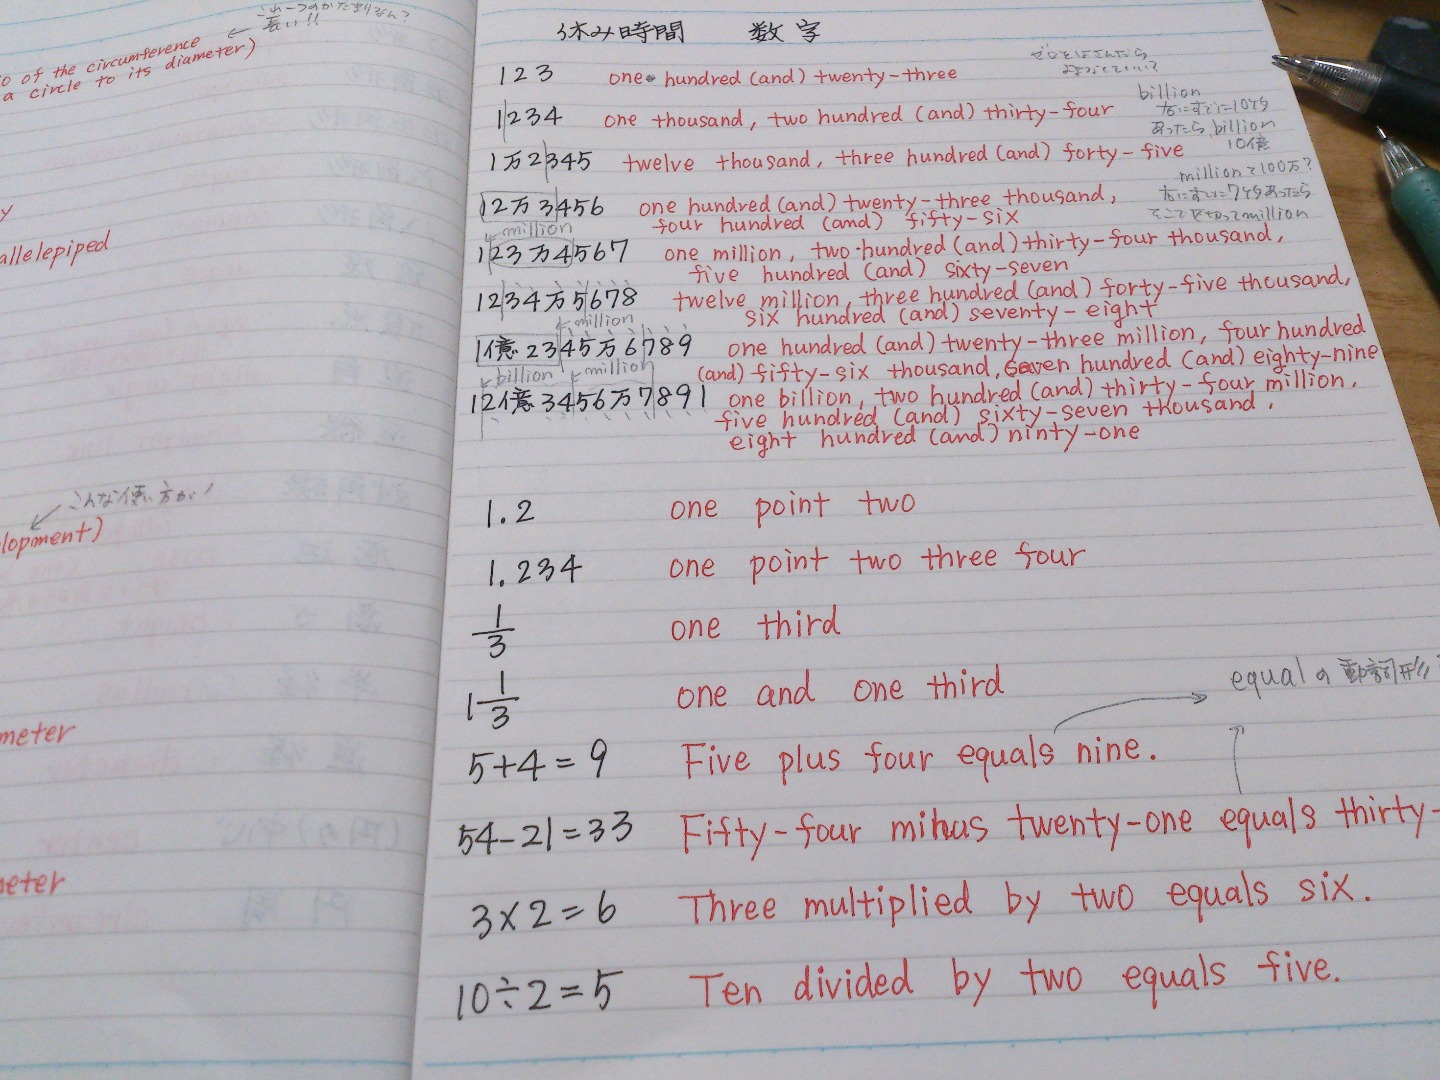 長い!!
o of the circumference
a circle to its diameter)
y
allelepiped
こんな使い方が!
lopment)
meter
meter
休み時間 数字
123 one hundred (and) twenty-three
1234 one thousand, two hundred (and) thirty-four
billion
右にすでに10ケタ
あったらbillion
10億
1万2345 twelve thousand, three hundred (and) forty-five
millionて100万?
右にすでに7ケタあったら
そこで区切ってmillion
12万3456 one hundred (and) twenty-three thousand,
four hundred (and) fifty-six
million
123万4567 one million, two hundred (and) thirty-four thousand,
five hundred (and) sixty-seven
1234万5678 twelve million, three hundred (and) forty-five thousand,
six hundred (and) seventy-eight
million
1億2345万6789 one hundred (and) twenty-three million, four hundred
(and) fifty-six thousand, seven hundred (and) eighty-nine
billion million
12億3456万7891 one billion, two hundred (and) thirty-four million,
five hundred (and) sixty-seven thousand,
eight hundred (and) ninty-one
1.2 one point two
1.234 one point two three four
1/3 one third
1 1/3 one and one third
equalの動詞形!
5+4=9 Five plus four equals nine.
54-21=33 Fifty-four minus twenty-one equals thirty-
3×2=6 Three multiplied by two equals six.
10÷2=5 Ten divided by two equals five.